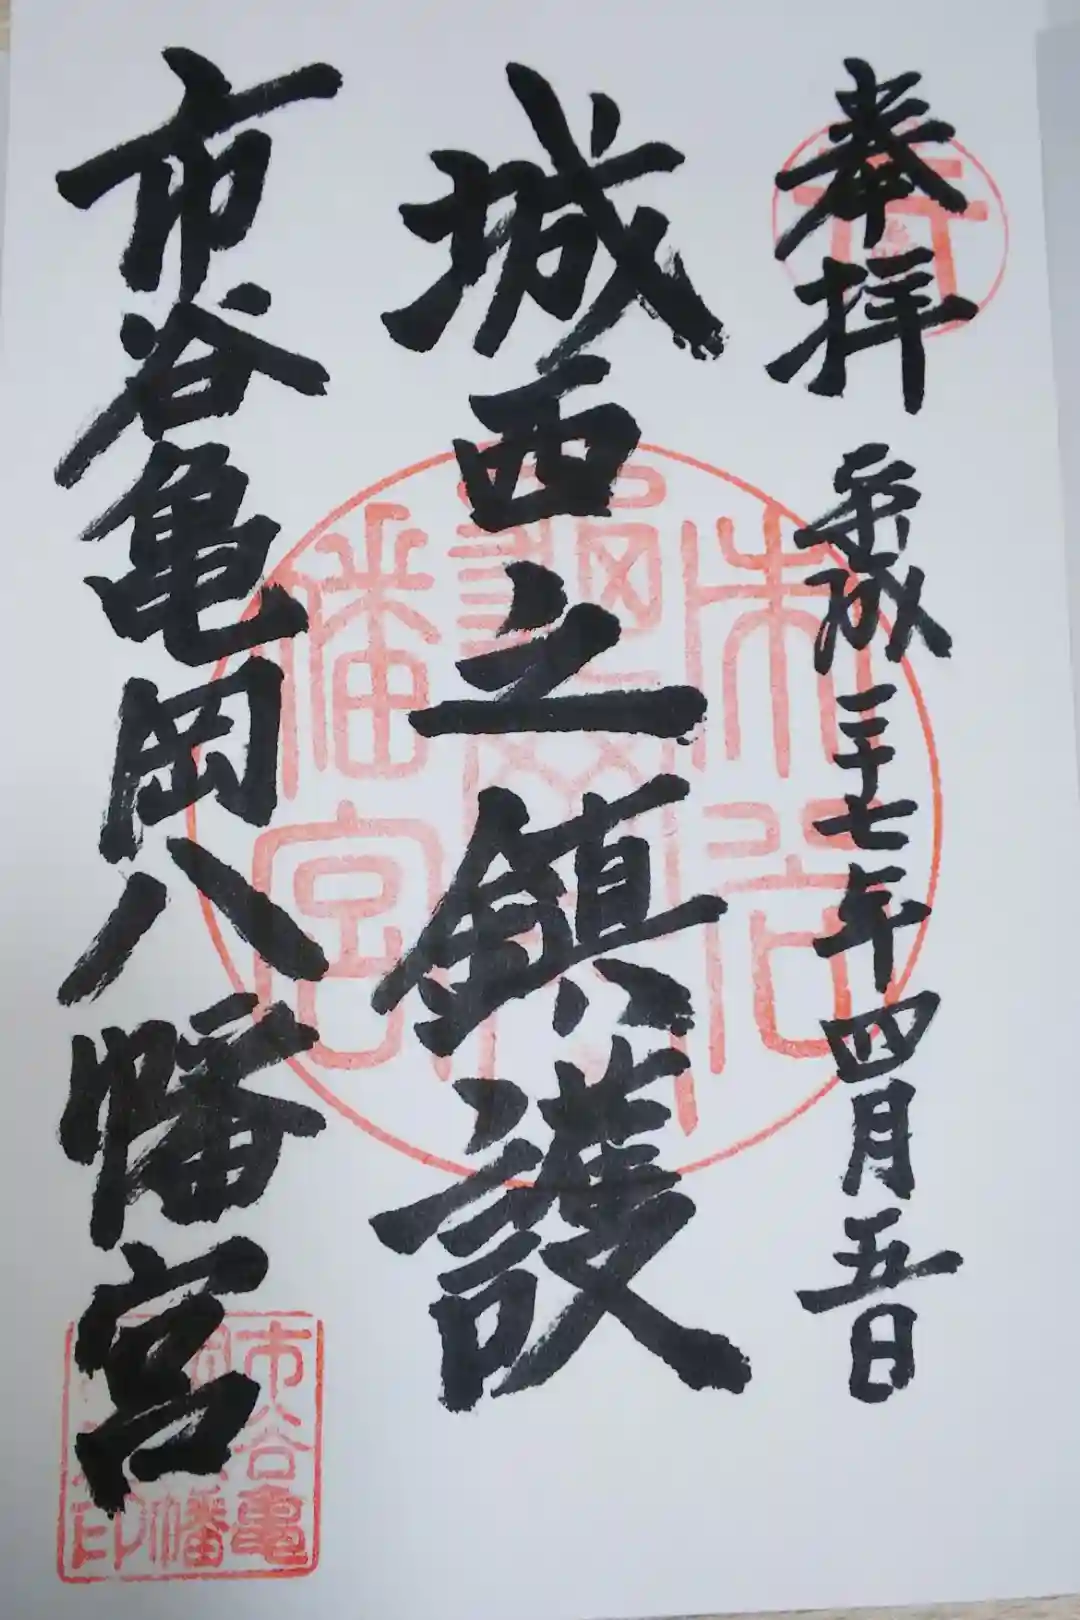 奉拝 平成二十七年四月五日
城西之鎮護
市谷亀岡八幡宮
市谷
八幡宮
市谷亀
幡
印